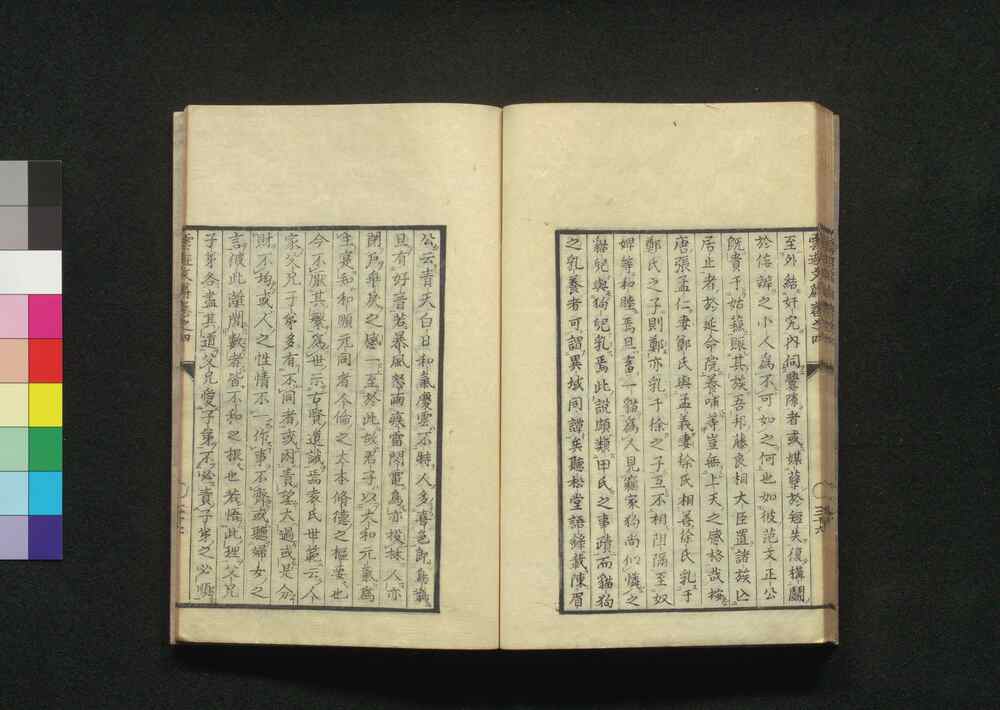 至外結奸宄内伺釁隙者或媒孽於短失復構鬬
於佞諛之小人為不可如之何也如彼范文正公
既貴于姑蘓賑其族吾邦藤良相大臣置諸族亡
居止者於延命院養哺等豈無上天之感格哉
唐張孟仁妻鄭氏與孟義妻徐氏相善徐氏乳于
鄭氏之子則鄭亦乳于徐之子互不相阻隔至奴
婢等和睦焉且畜一貓為人見竊家狗尚似憐之
貓兒與狗兒乳焉此説頗類田氏之事蹟而貓狗
之乳養者可謂異域同譚矣聽松堂語録載陳眉
公云青天白日和氣慶雲不特人多喜色即鳥鵲
且有好音若暴風怒雨疾雷閃電鳥亦投林人亦
閉戸乖戾之感一至於此故君子以太和元氣為
主夫和和願元同者今倫之大本脩德之樞要也
今不厭其繫為世示古賢遺誡焉袁氏世範云人
家父兄子弟多有不同者或因責望太過或是分
財不均或人之性情不一作事不齊或聽婦女之
言彼此離間數者皆不和之根也若悟此理父兄
子弟各盡其道父兄愛子弟不必責子弟之必順